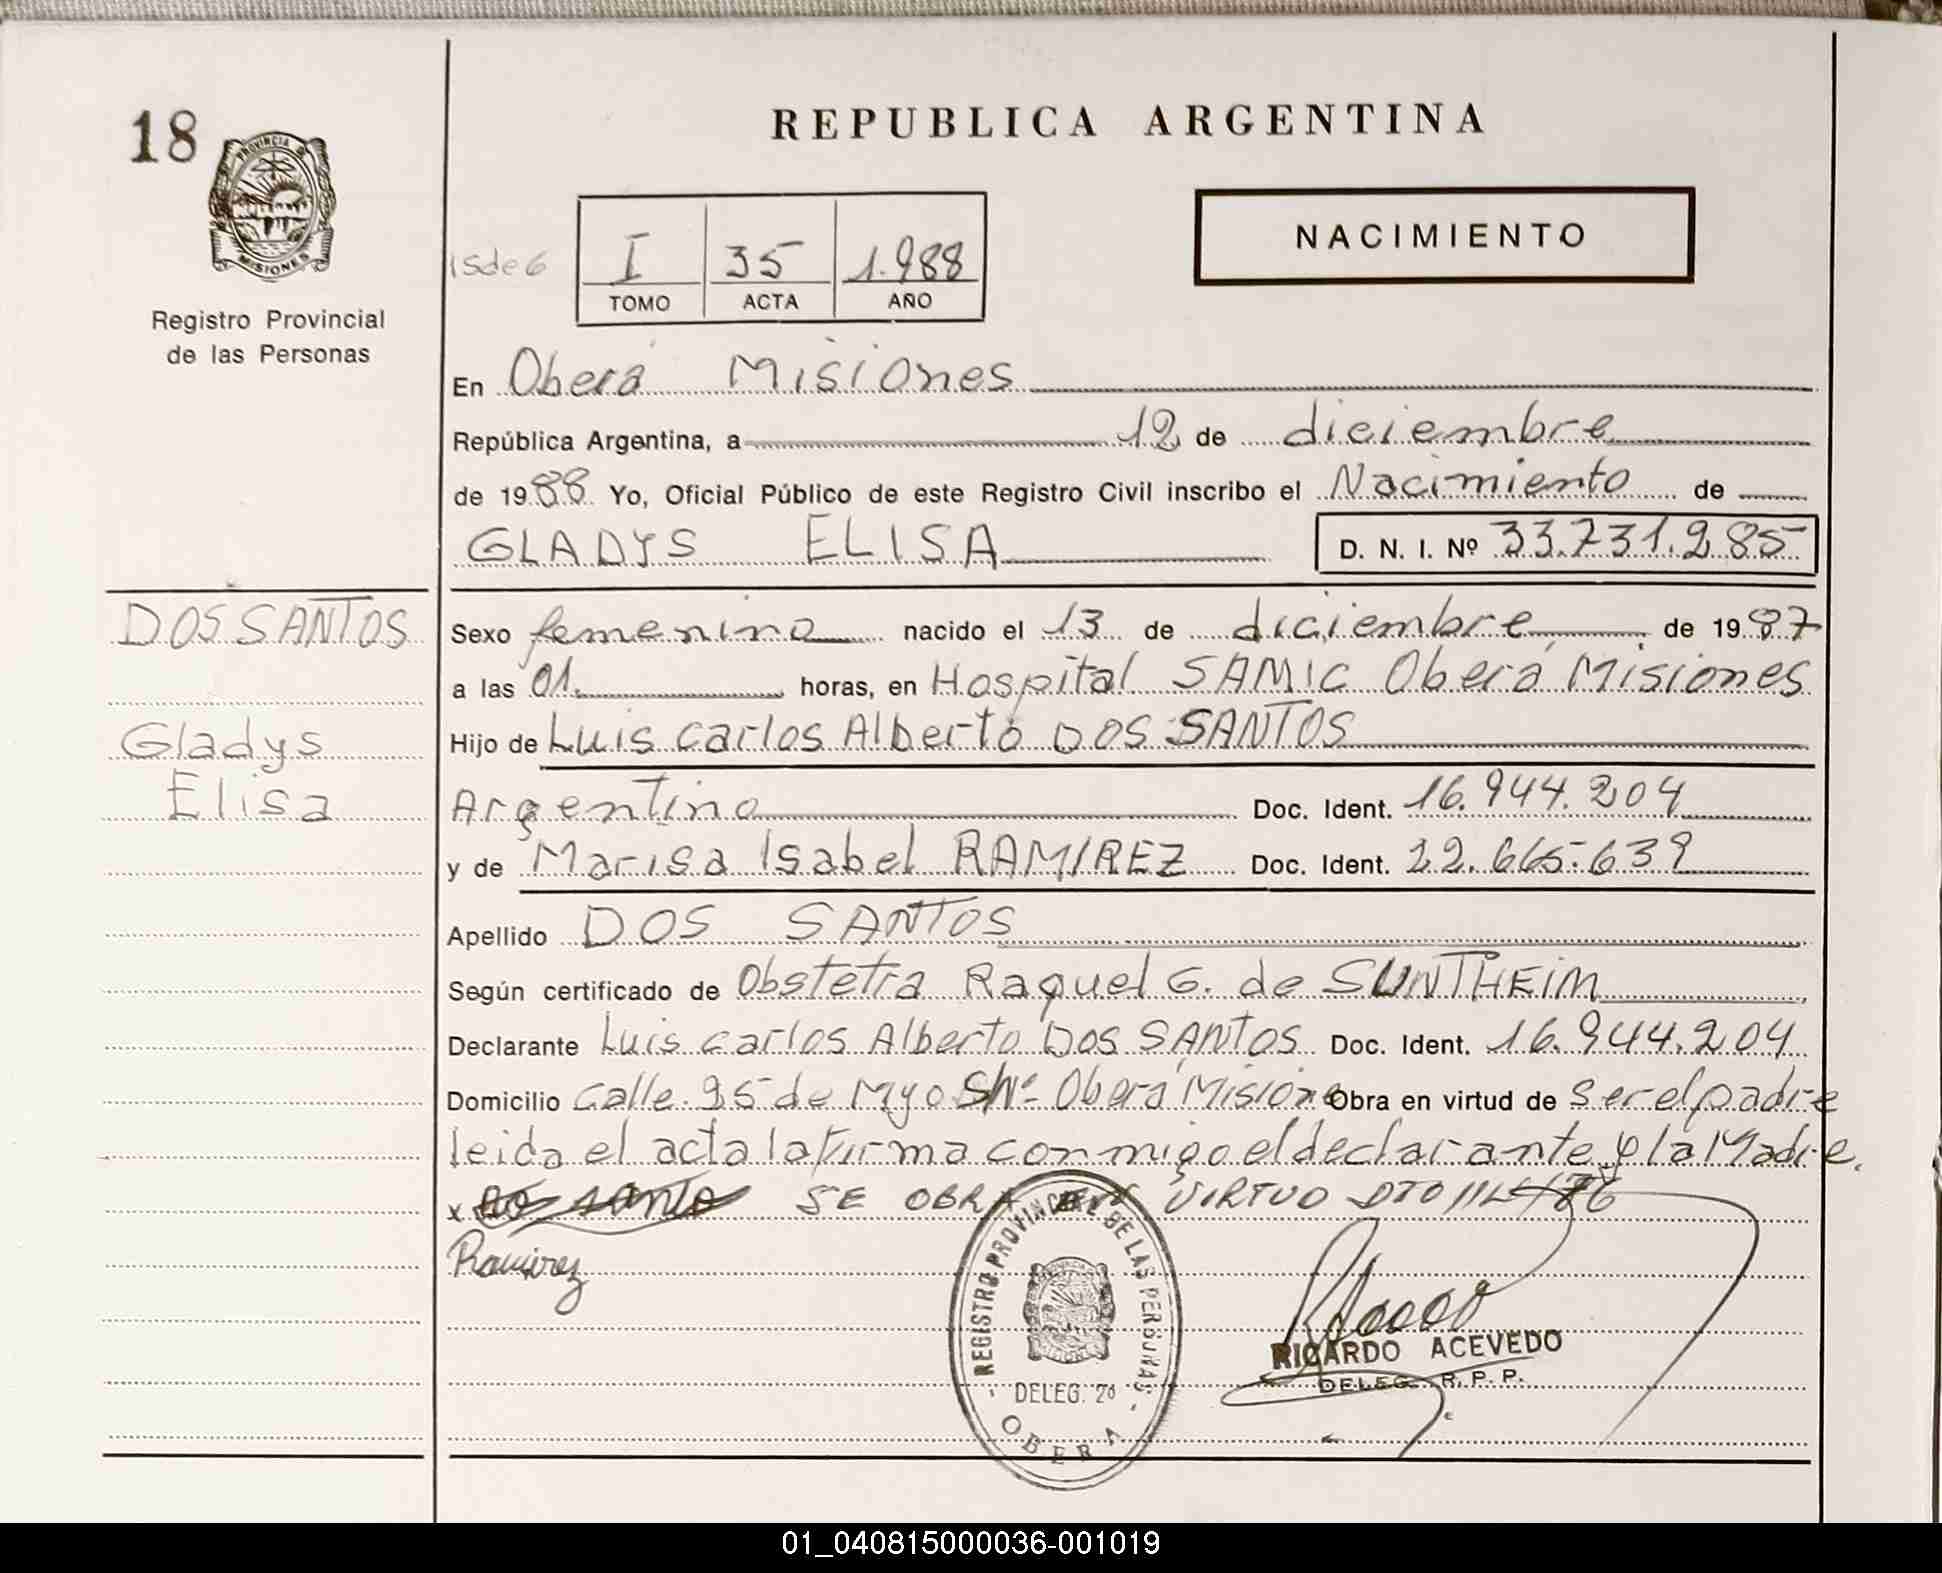 18
PROVINCIA DE
MISIONES
Registro Provincial
de las Personas
REPUBLICA ARGENTINA
NACIMIENTO
I 35 1.988
TOMO ACTA AÑO
En Oberá Misiones
República Argentina, a 12 de diciembre
de 1988 Yo, Oficial Público de este Registro Civil inscribo el Nacimiento de
GLADYS ELISA D. N. I. Nº 33.731.285
DOS SANTOS
Gladys
Elisa
Sexo femenino nacido el 13 de diciembre de 1987
a las 01. horas, en Hospital SAMIC Oberá Misiones
Hijo de Luis Carlos Alberto DOS SANTOS
Argentino Doc. Ident. 16.944.204
y de Marisa Isabel RAMIREZ Doc. Ident. 22.665.639
Apellido DOS SANTOS
Según certificado de Obstetra Raquel G. de SUNTHEIM
Declarante Luis Carlos Alberto DOS SANTOS Doc. Ident. 16.944.204
Domicilio Calle 25 de Myo S/Nº Oberá Misione Obra en virtud de Ser el padre
leida el acta la firma conmigo el declarante y la Madre.
x SE OBRA EN VIRTUD DTO
Ramirez
REGISTRO PROVINCIAL DE LAS PERSONAS
DELEG. 2ª
OBERA
RICARDO ACEVEDO
DELEG. R. P. P.
01_040815000036-001019